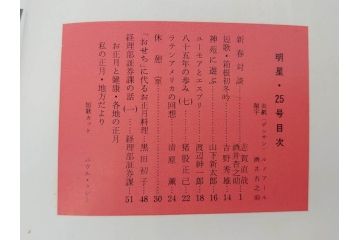 明星・25号目次
表紙(デッサン) ルノアール
題字 酒井杏之助
新春対談 志賀直哉 酒井杏之助 1
短歌・箱根初冬吟 吉野秀雄 14
神苑に遊ぶ 山下新太郎 16
ユーモアとエスプリ 渡辺紳一郎 18
八十五年の歩み(七) 猪股正己 22
ラテンアメリカの回想 清原薫 24
休憩室 30
「おせち」に代るお正月料理 黒田初子 48
経理部証券課の話(一) 経理部証券課 51
お正月と健康・各地の正月
私の正月・地方だより